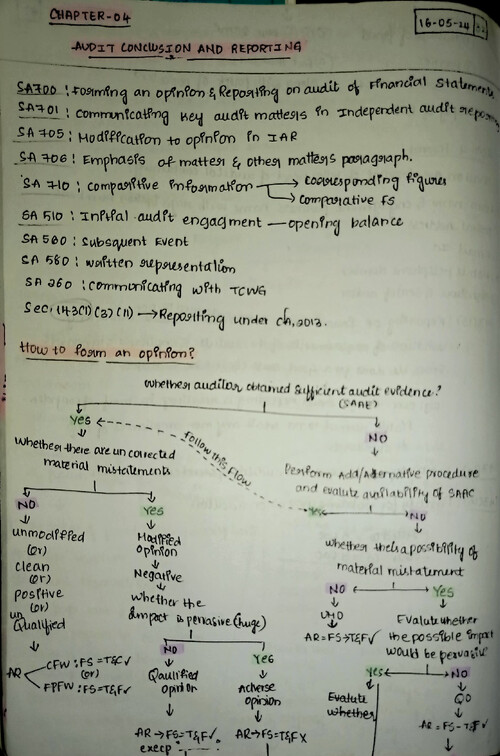 CHAPTER-04
16-05-24
AUDIT CONCLUSION AND REPORTING
SA700 : Forming an opinion & Reporting on audit of Financial Statements
SA701 : communicating Key audit matters in Independent audit report
SA 705 : Modification to opinion in IAR
SA 706 : Emphasis of matter & other matters paragraph.
SA 710 : comparitive information → corresponding figures
→ comparative FS
SA 510 : Initial audit engagment — opening balance
SA 560 : Subsquent Event
SA 580 : written representation
SA 260 : communicating with TCWG
Sec. 143(1) (3) (11) → Reporting under ch, 2013.
How to form an opinion?
Whether auditor obtained sufficient audit evidence?
(SAAE)
YES
NO
Follow this flow
Whether there are un corrected
material misstatements
Perform Add/Alternative procedure
and evalute availability of SAAE
Yes
NO
NO
Yes
unmodified
(or)
clean
(or)
positive
(or)
un
Qualified
Modified
opinion
Negative
Whether the
Impact is pervasive (huge)
Whether there's a possibility of
material misstatement
NO
Yes
UMO
AR = FS → T&F✓
Evalute whether
the possible impact
would be pervasive
NO
Yes
Yes
NO
AR
CFW : FS = T&F✓
(or)
FPFW : FS = T&F✓
Qaulified
opinion
Adverse
opinion
Evalute
whether
QO
AR = FS - T&F✓
AR → FS = T&F✓
AR → FS = T&F X